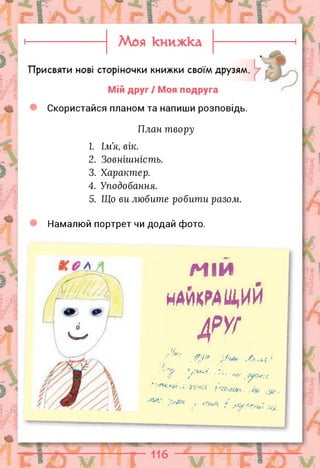 Моя книжка
Присвяти нові сторіночки книжки своїм друзям.
Мій друг / Моя подруга
Скористайся планом та напиши розповідь.
План твору
1. Ім'я, вік.
2. Зовнішність.
3. Характер.
4. Уподобання.
5. Що ви любите робити разом.
Намалюй портрет чи додай фото.
КОЛЯ
МІЙ
НАЙКРАЩИЙ
ДРУГ
116